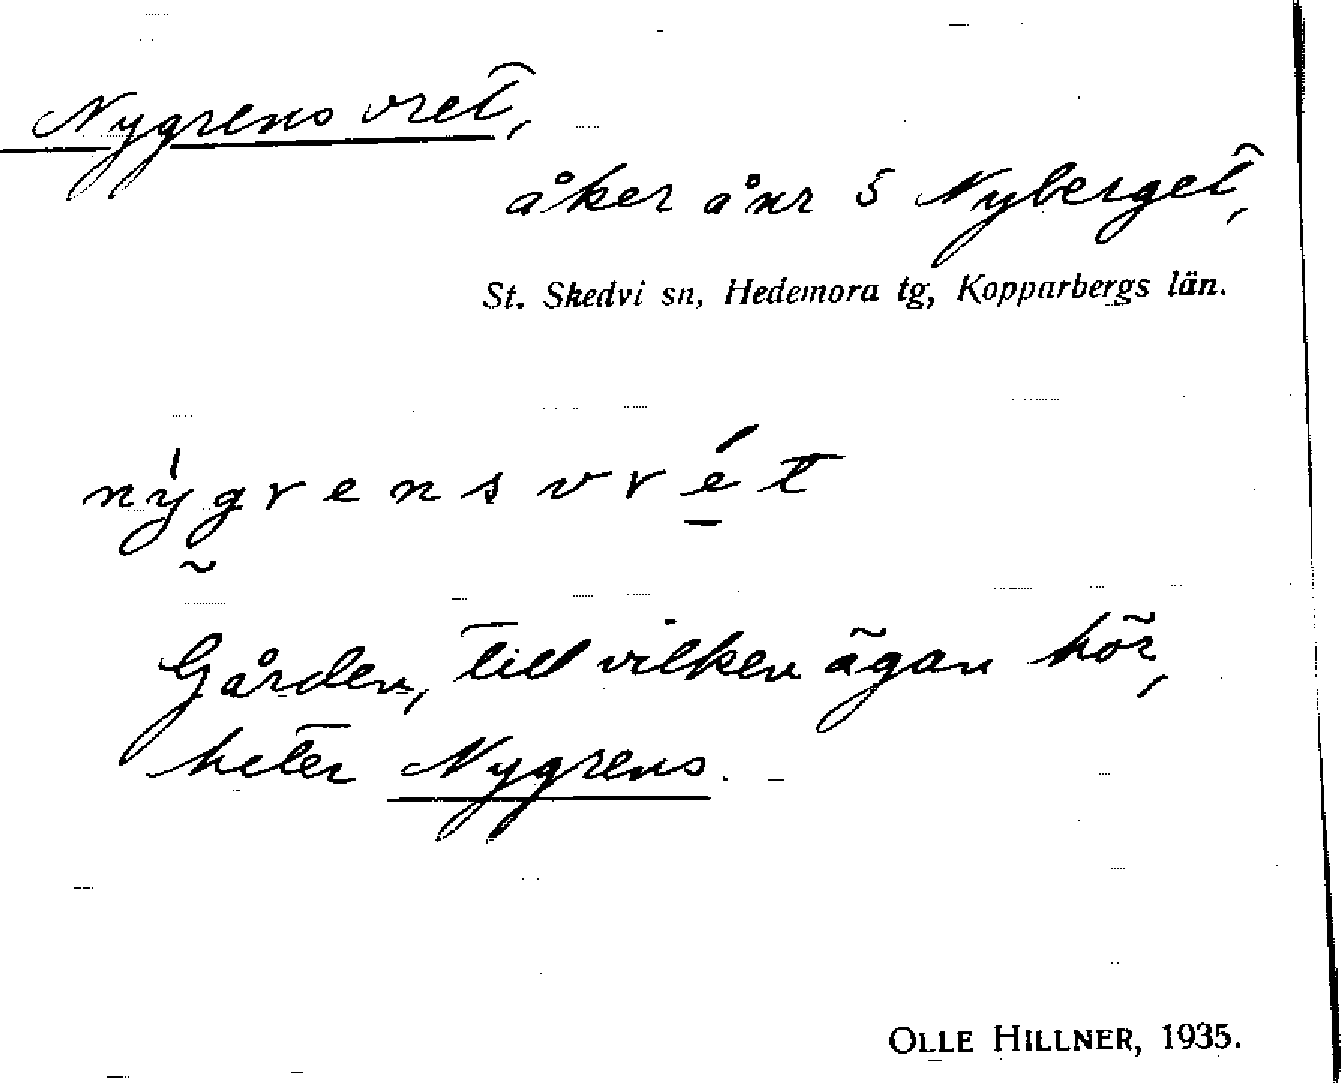 Nygrens vret,
åker å nr 5 Nyberget,
St. Skedvi sn, Hedemora tg, Kopparbergs län.
nygrensvrét
Gården, till vilken ägan hör,
heter Nygrens.
OLLE HILLNER, 1935.